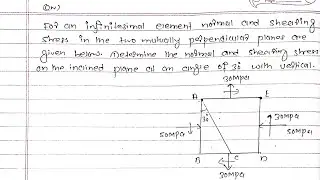 QN)
For an infinitesimal element normal and shearing
stress in the two mutually perpendicular planes are
given below. Determine the normal and shearing stress
on the inclined plane at an angle of 30 with vertical.
30MPa
A
E
30
30MPa
50MPa
50MPa
B
C
D
30MPa